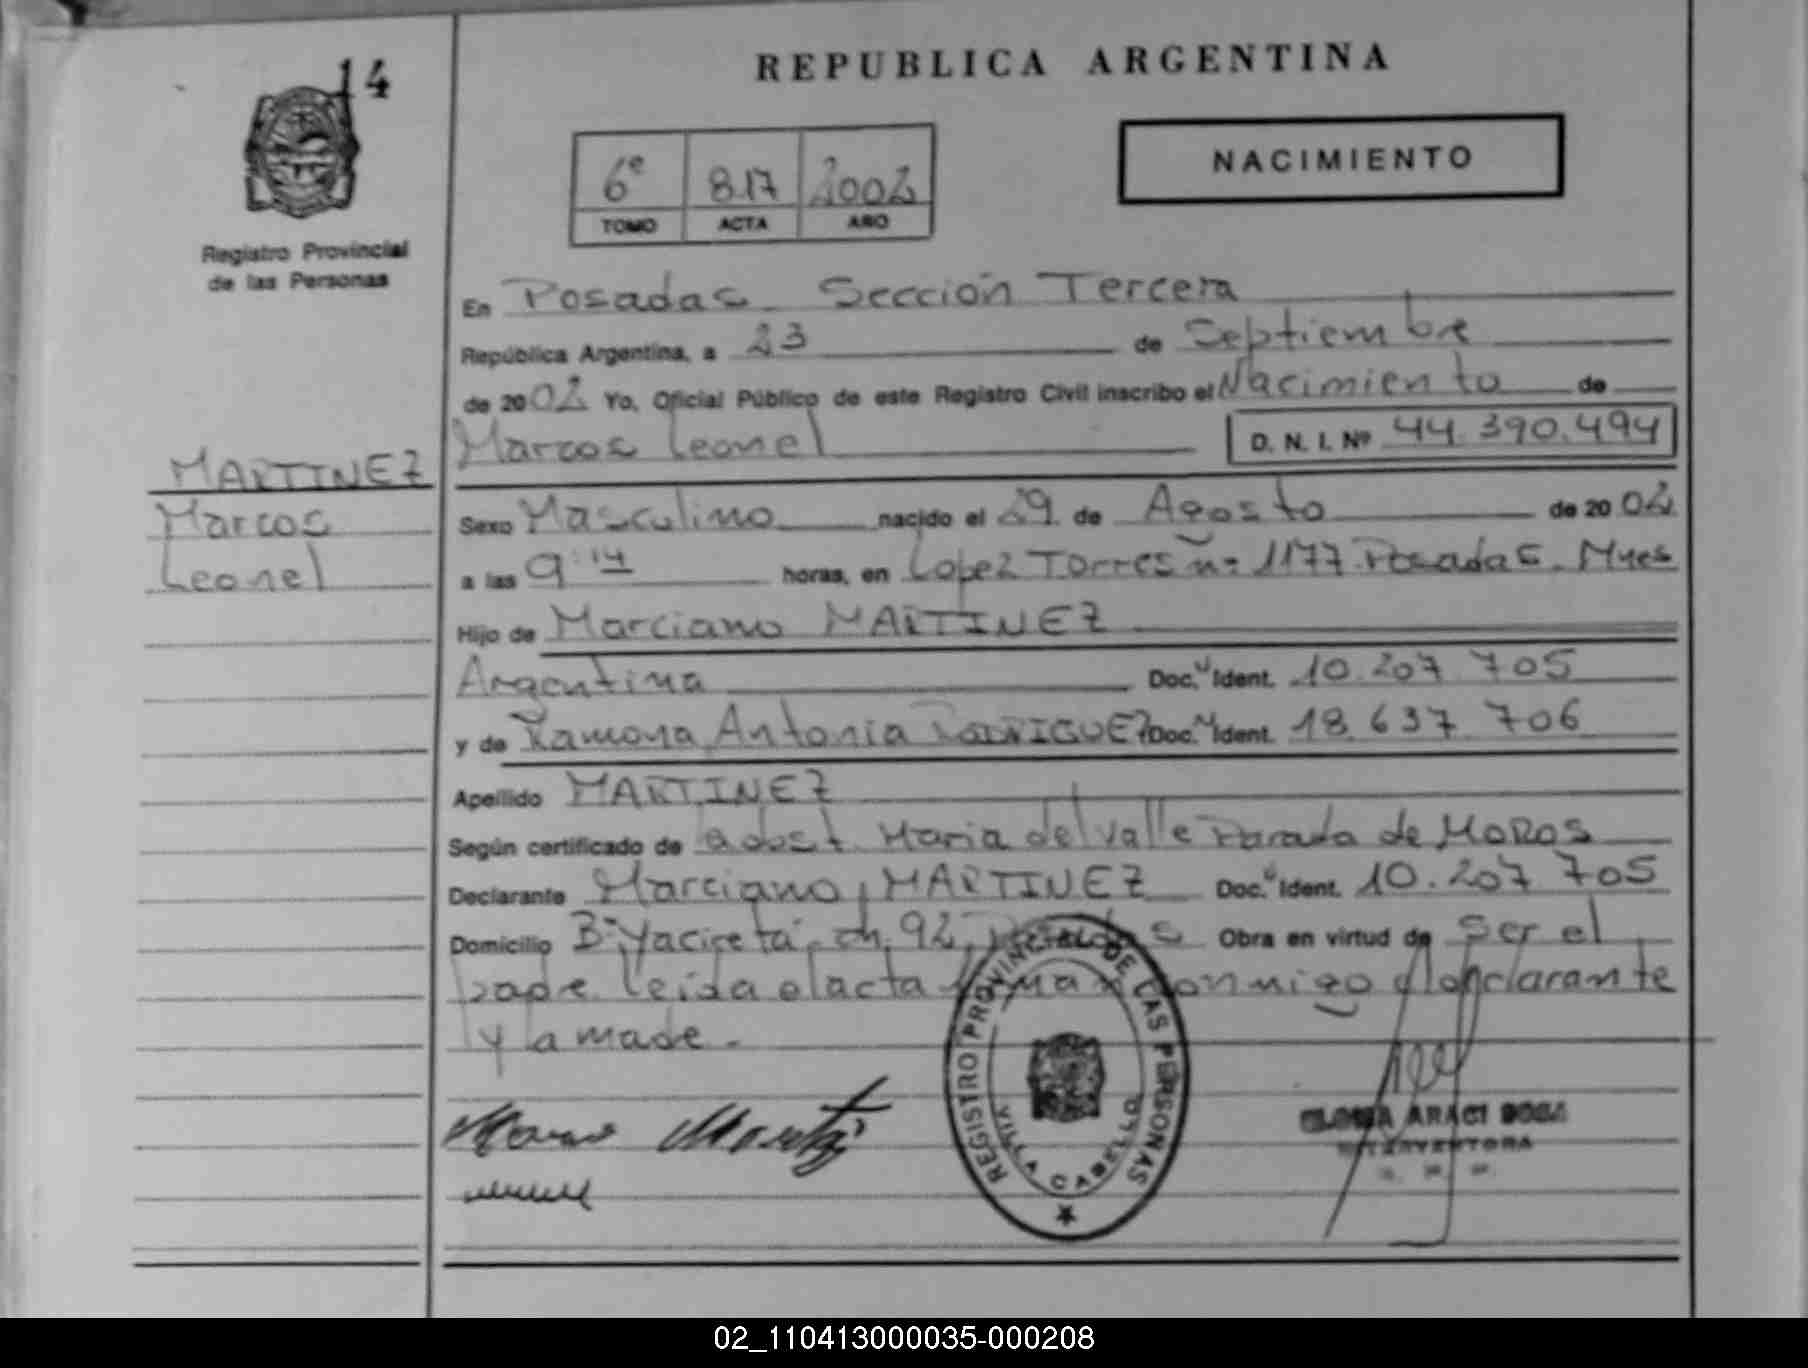 14
REPUBLICA ARGENTINA
NACIMIENTO
6º 817 2002
TOMO ACTA AÑO
Registro Provincial
de las Personas
En Posadas Sección Tercera
República Argentina, a 23 de Septiembre
de 2002 Yo, Oficial Público de este Registro Civil inscribo el Nacimiento de
Marcos Leonel D. N. I. Nº 44.390.494
MARTINEZ
Marcos
Leonel
Sexo Masculino nacido el 29 de Agosto de 2002
a las 9:14 horas, en Lopez Torres nº 1177 Posadas. Mnes
Hijo de Marciano MARTINEZ
Argentina Doc. Ident. 10.207.705
y de Ramona Antonia RODRIGUEZ Doc. Ident. 18.637.706
Apellido MARTINEZ
Según certificado de la obst. Maria del Valle Parada de MOROS
Declarante Marciano MARTINEZ Doc. Ident. 10.207.705
Domicilio Bº Yacireta ch. 92, Posadas Obra en virtud de Ser el
padre leida el acta firman conmigo el declarante
y la madre.
REGISTRO PROVINCIAL DE LAS PERSONAS
VILLA CABELLO
ARACI SOSA
INTERVENTORA
02_110413000035-000208